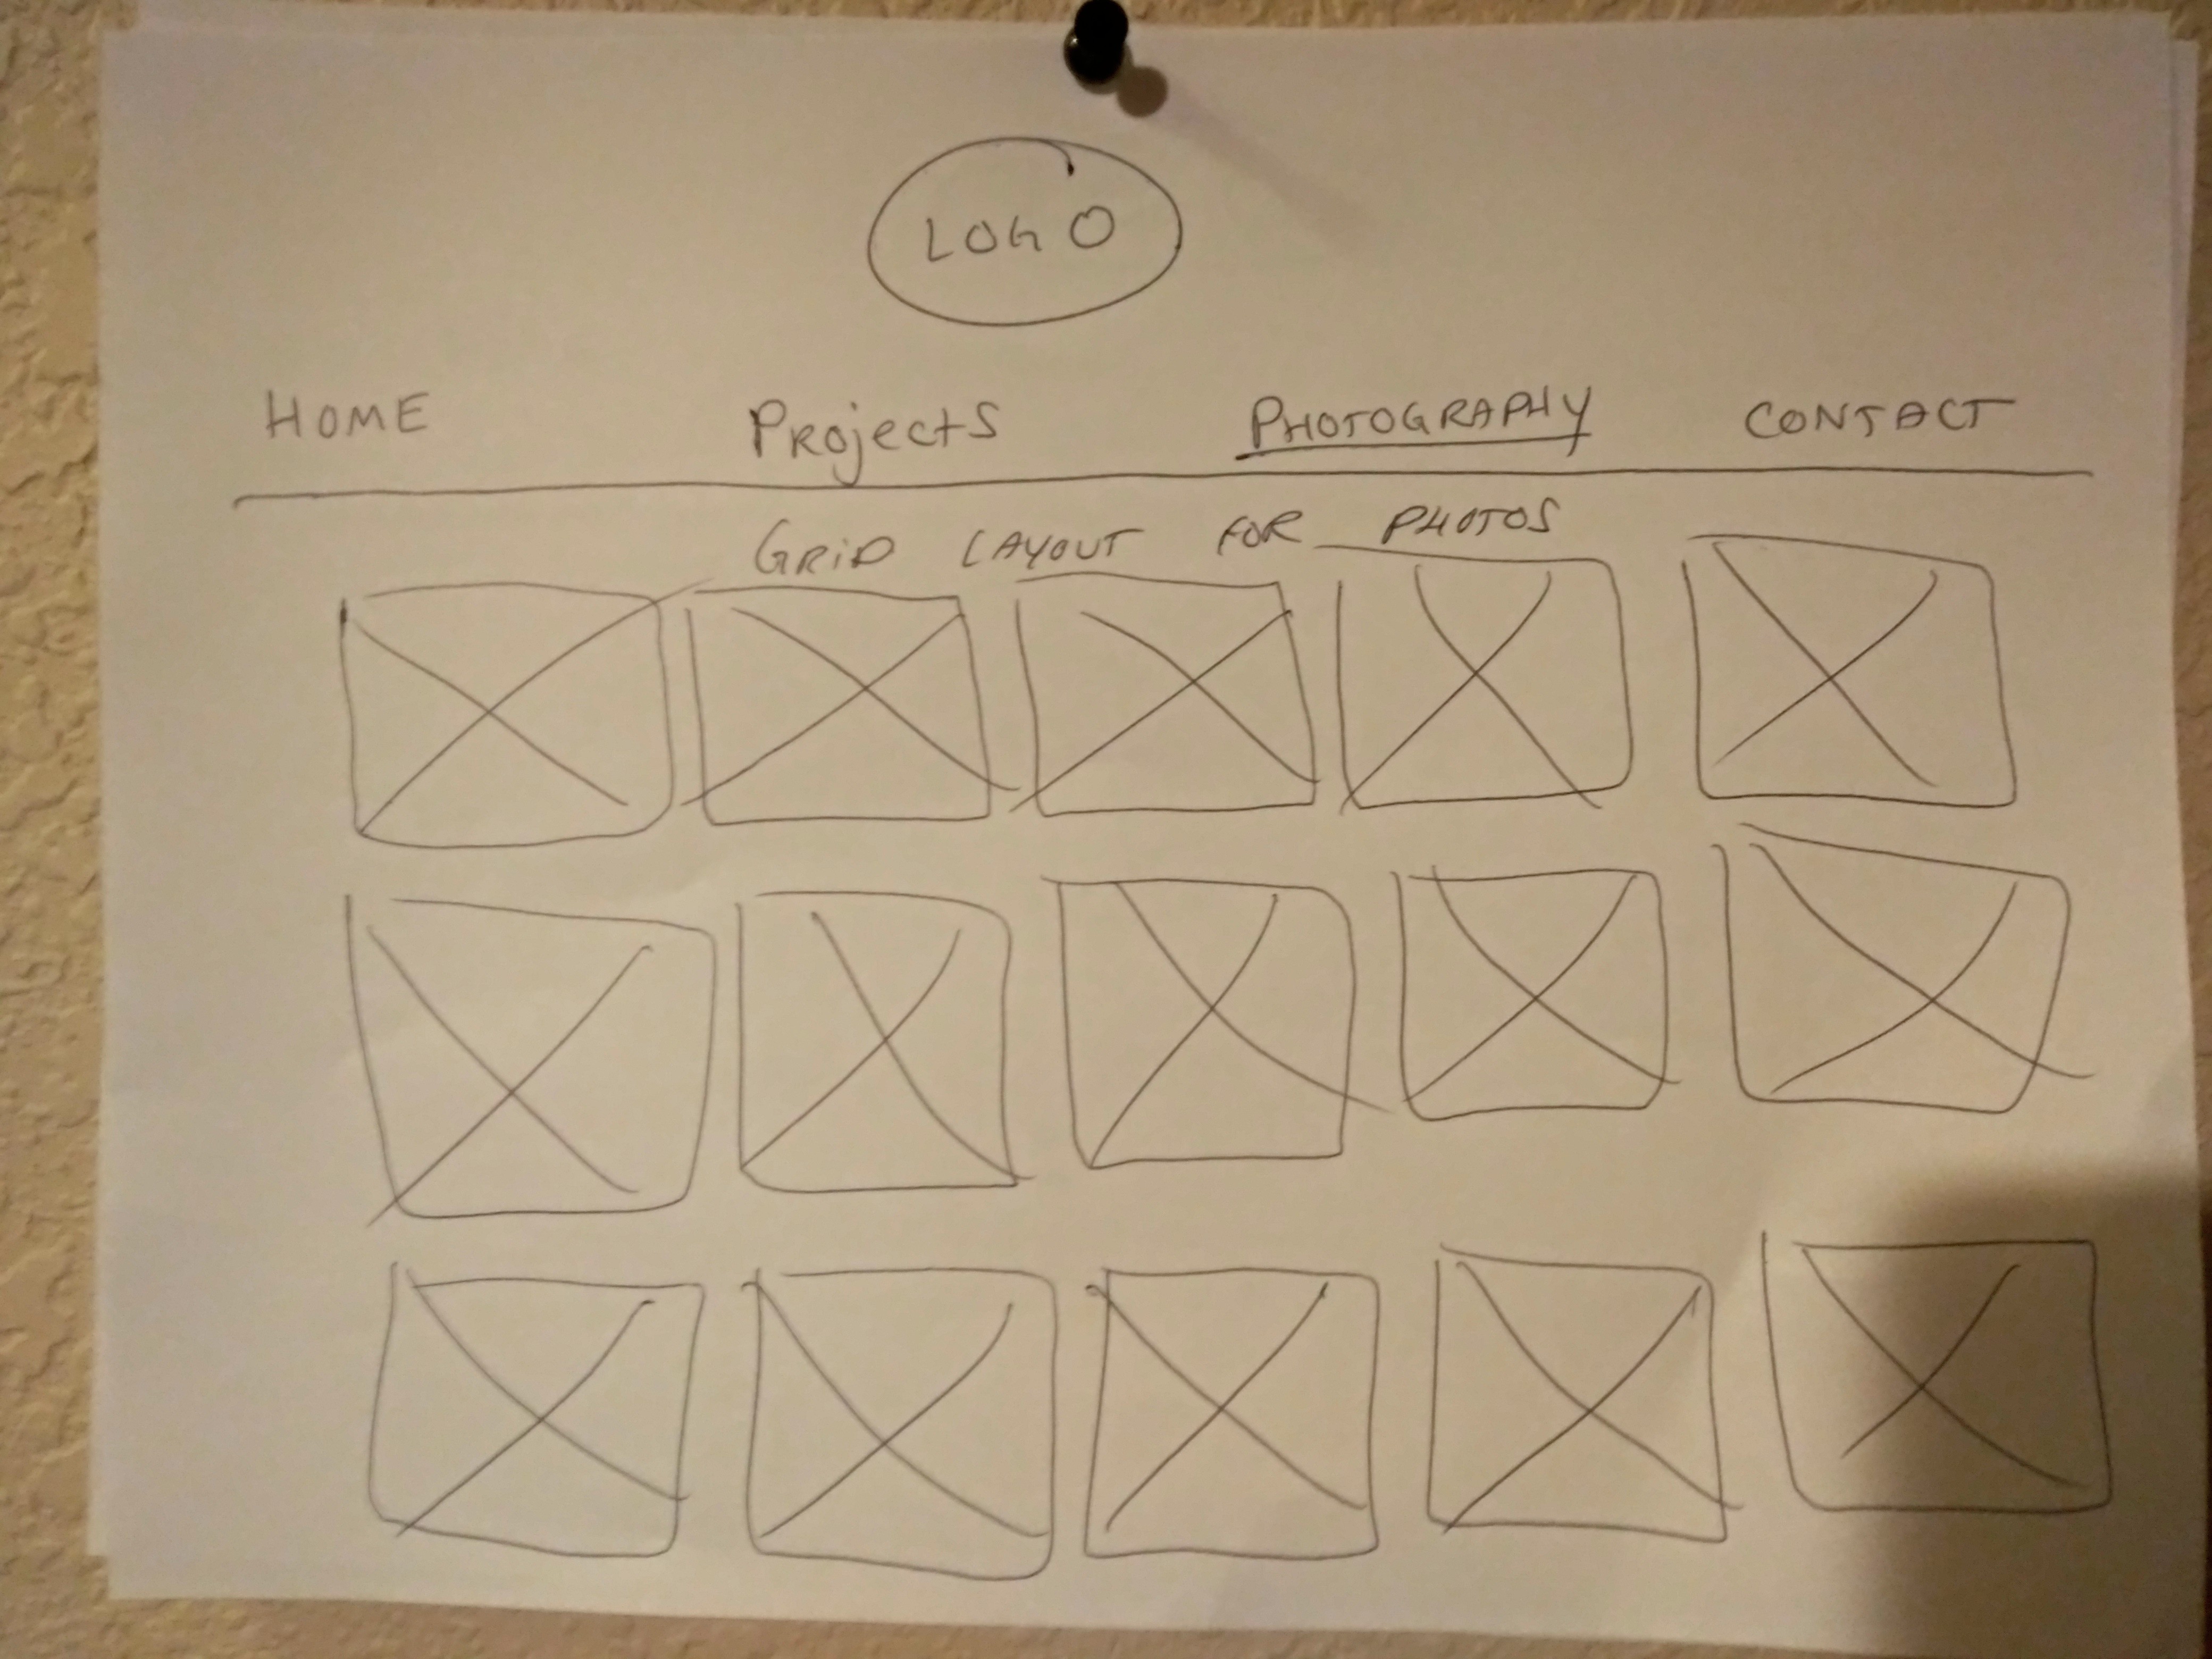 LOGO
HOME Projects PHOTOGRAPHY CONTACT
GRiD LAYOUT FOR PHOTOS